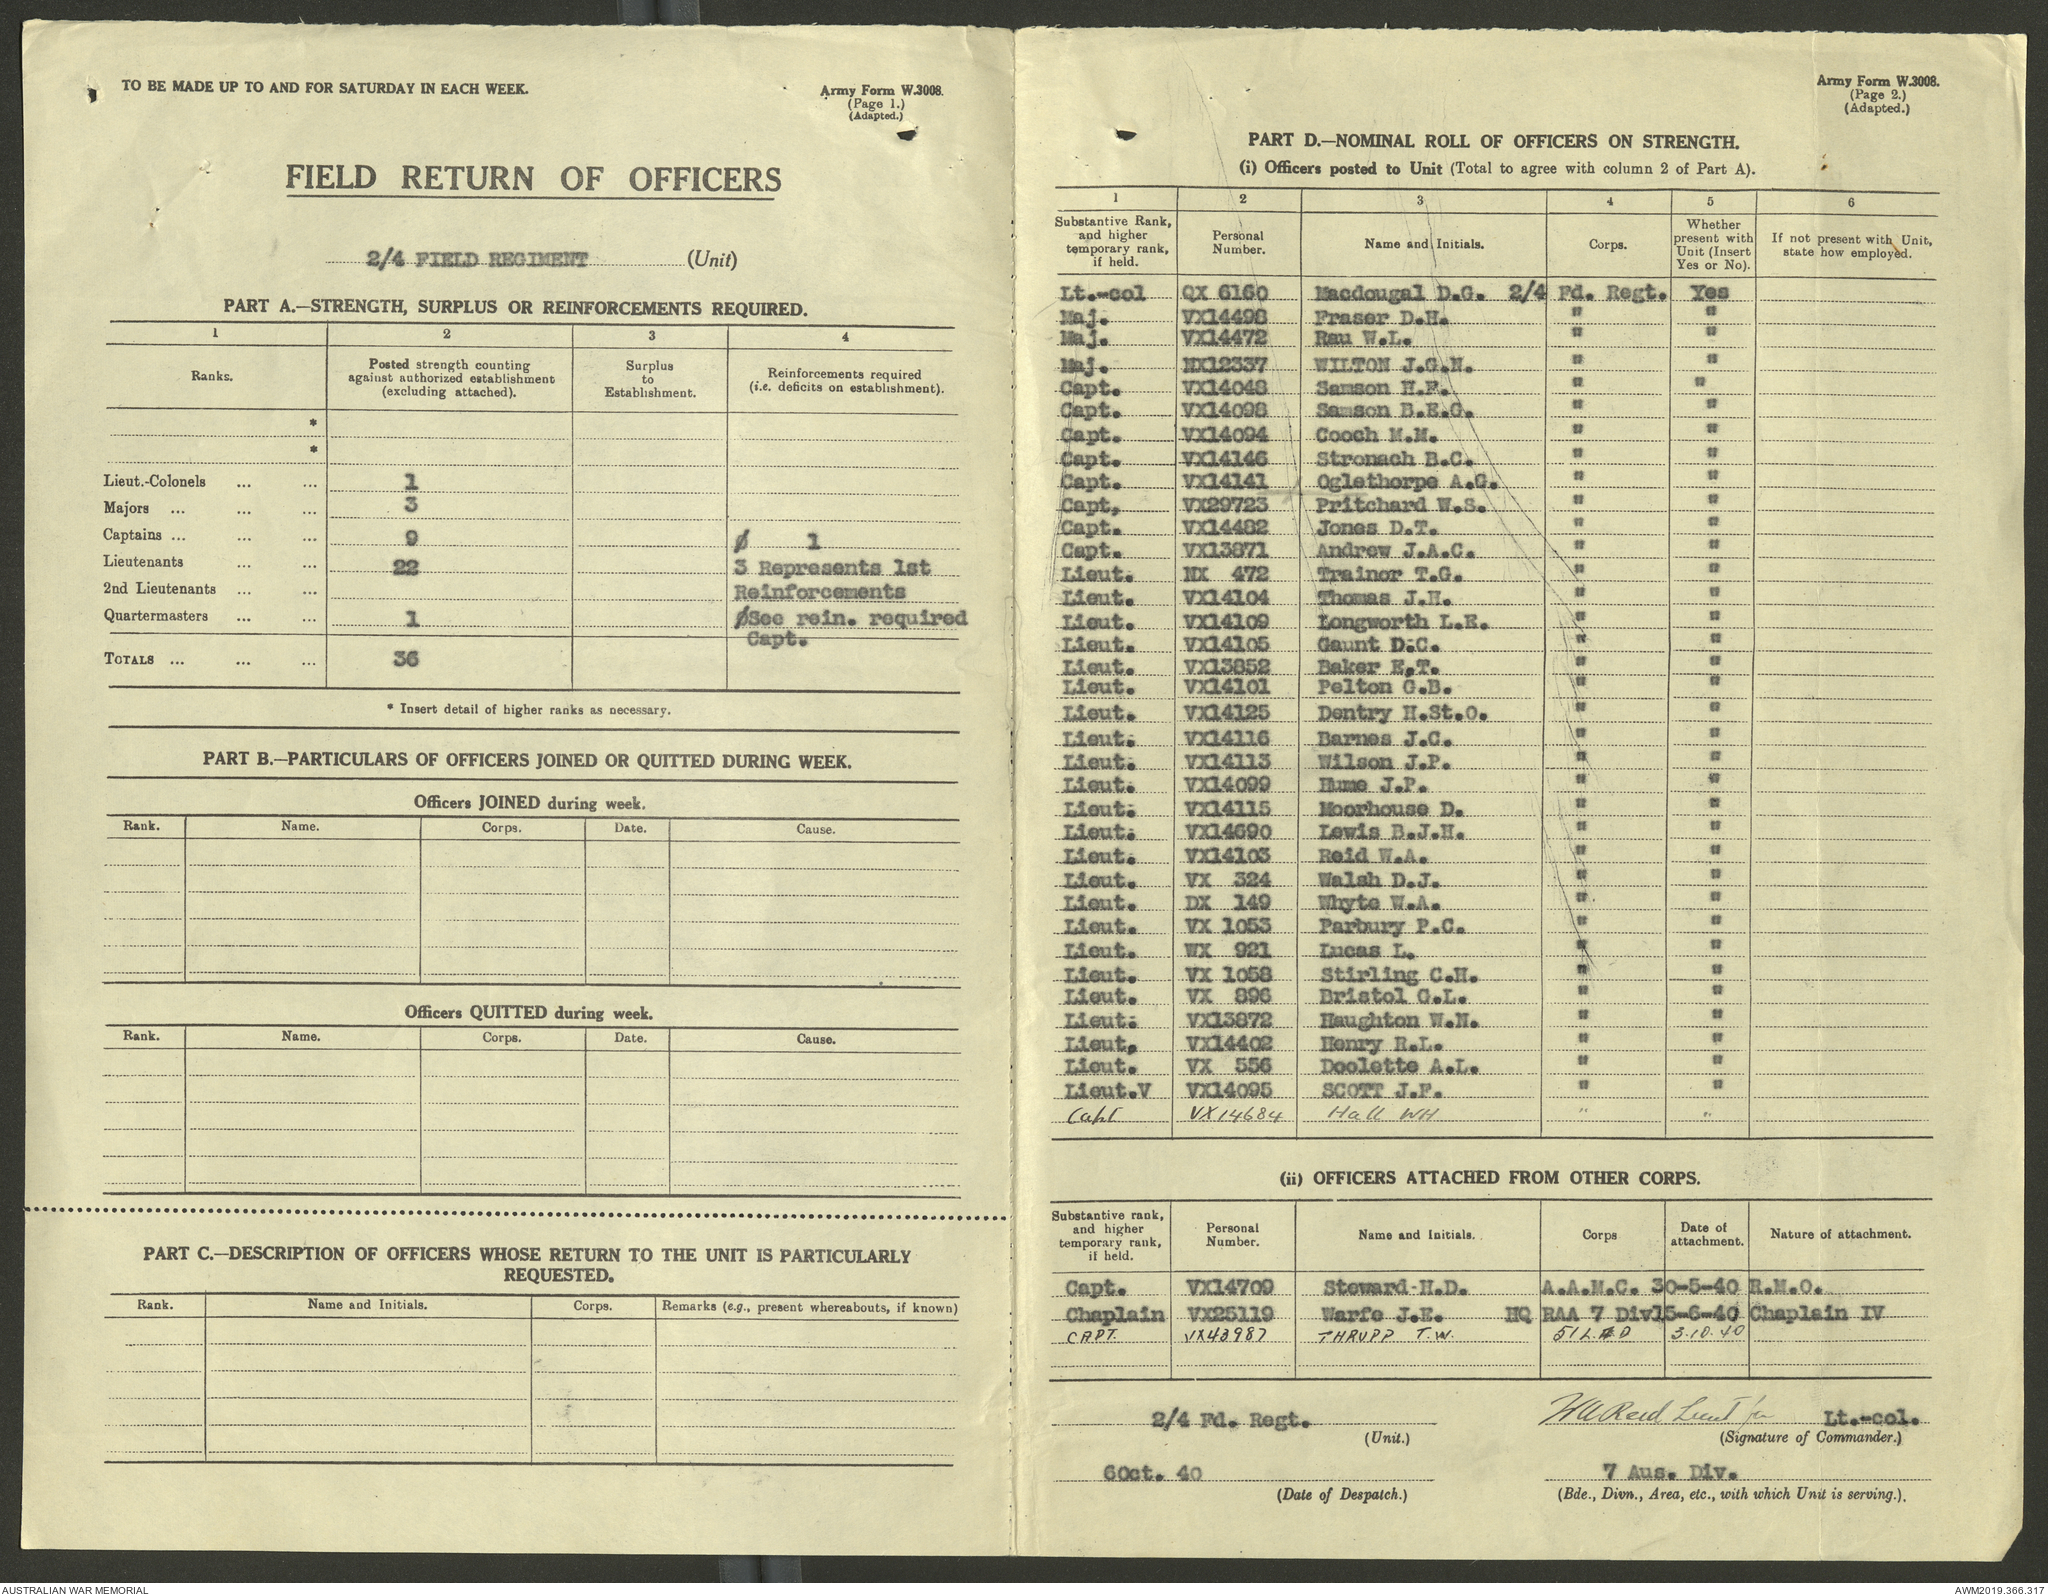 TO BE MADE UP TO AND FOR SATURDAY IN EACH WEEK.
Army Form W.3008.
(Page 1.)
(Adapted.)
FIELD RETURN OF OFFICERS
2/4 FIELD REGIMENT (Unit)
PART A.—STRENGTH, SURPLUS OR REINFORCEMENTS REQUIRED.
1 2 3 4
Ranks. Posted strength counting against authorized establishment (excluding attached). Surplus to Establishment. Reinforcements required (i.e. deficits on establishment).
*
*
Lieut.-Colonels ... ... 1
Majors ... ... ... 3
Captains ... ... ... 9 Ø 1
Lieutenants ... ... 22 3 Represents 1st
2nd Lieutenants ... ... Reinforcements
Quartermasters ... ... 1 ØSee rein. required
Capt.
TOTALS ... ... ... 36
* Insert detail of higher ranks as necessary.
PART B.—PARTICULARS OF OFFICERS JOINED OR QUITTED DURING WEEK.
Officers JOINED during week.
Rank. Name. Corps. Date. Cause.
Officers QUITTED during week.
Rank. Name. Corps. Date. Cause.
PART C.—DESCRIPTION OF OFFICERS WHOSE RETURN TO THE UNIT IS PARTICULARLY
REQUESTED.
Rank. Name and Initials. Corps. Remarks (e.g., present whereabouts, if known)
Army Form W.3008.
(Page 2.)
(Adapted.)
PART D.—NOMINAL ROLL OF OFFICERS ON STRENGTH.
(i) Officers posted to Unit (Total to agree with column 2 of Part A).
1 2 3 4 5 6
Substantive Rank, and higher temporary rank, if held. Personal Number. Name and Initials. Corps. Whether present with Unit (Insert Yes or No). If not present with Unit, state how employed.
Lt.-col QX 6160 Macdougal D.G. 2/4 Fd. Regt. Yes
Maj. VX14498 Fraser D.H. " "
Maj. VX14472 Rau W.L. " "
Maj. NX12337 WILTON J.G.N. " "
Capt. VX14048 Samson H.F. " "
Capt. VX14098 Samson B.E.G. " "
Capt. VX14094 Gooch M.M. " "
Capt. VX14146 Stronach B.C. " "
Capt. VX14141 Oglethorpe A.G. " "
Capt, VX29723 Pritchard W.S. " "
Capt. VX14482 Jones D.T. " "
Capt. VX13871 Andrew J.A.C. " "
Lieut. NX 472 Trainor T.G. " "
Lieut. VX14104 Thomas J.H. " "
Lieut. VX14109 Longworth L.E. " "
Lieut. VX14105 Gaunt D.C. " "
Lieut. VX13852 Baker E.T. " "
Lieut. VX14101 Pelton G.B. " "
Lieut. VX14125 Dentry H.St.O. " "
Lieut. VX14116 Barnes J.C. " "
Lieut. VX14113 Wilson J.P. " "
Lieut. VX14099 Hume J.P. " "
Lieut. VX14115 Moorhouse D. " "
Lieut. VX14690 Lewis B.J.H. " "
Lieut. VX14103 Reid W.A. " "
Lieut. VX 324 Walsh D.J. " "
Lieut. DX 149 Whyte W.A. " "
Lieut. VX 1053 Parbury P.C. " "
Lieut. WX 921 Lucas L. " "
Lieut. VX 1058 Stirling C.H. " "
Lieut. VX 896 Bristol G.L. " "
Lieut. VX13872 Haughton W.N. " "
Lieut. VX14402 Henry R.L. " "
Lieut. VX 556 Doolette A.L. " "
Lieut.V VX14095 SCOTT J.F. " "
Capt VX14684 Hall WH " "
(ii) OFFICERS ATTACHED FROM OTHER CORPS.
Substantive rank, and higher temporary rank, if held. Personal Number. Name and Initials. Corps Date of attachment. Nature of attachment.
Capt. VX14709 Steward H.D. A.A.M.C. 30-5-40 R.M.O.
Chaplain VX25119 Warfe J.E. HQ RAA 7 Div 15-6-40 Chaplain IV
CAPT. VX43987 THRUPP T.W. 51 L.A.D 3.10.40
2/4 Fd. Regt. WA Reid Lieut for Lt.-col.
(Unit.) (Signature of Commander.)
6Oct. 40 7 Aus. Div.
(Date of Despatch.) (Bde., Divn., Area, etc., with which Unit is serving.).
AUSTRALIAN WAR MEMORIAL
AWM2019.366.317